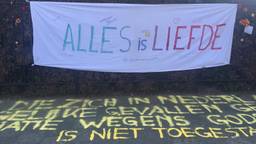 ALLES is LIEFDE
ZICH IN NEDERL
GEVALLEN GE
ATIE WEGENS GOD
IS NIET TOEGESTA